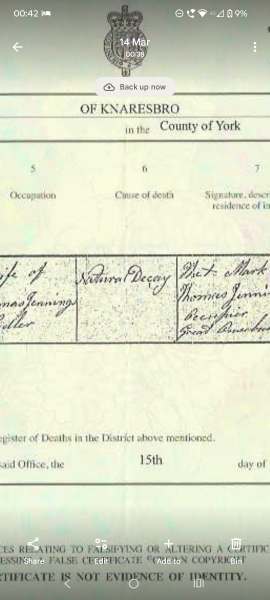 00:42
9%
14 Mar
00:38
Back up now
OF KNARESBRO
in the County of York
5
6
7
Occupation
Cause of death
Signature, descri
residence of in
ife of
mas Jennings
Natural Decay
Mark
Thomas Jenni
egister of Deaths in the District above mentioned.
said Office, the
15th
day of
Share
Edit
Add to
Bin
CES RELATING TO FALSIFYING OR ALTERING A CERTIFIC
FALSE CERTIFICATE © CROWN COPYRIGHT
RTIFICATE IS NOT EVIDENCE OF IDENTITY.